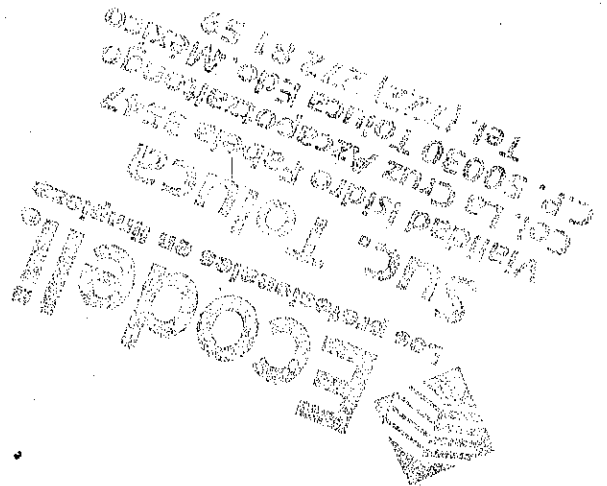 Ecodeli.
Los profesionales en limpieza
Suc. Toluca
Vialidad Isidro Fabela 3547
Col. La Cruz Azcapotzaltongo
C.P. 50030 Toluca Edo. México
Tel. (722) 272 81 59